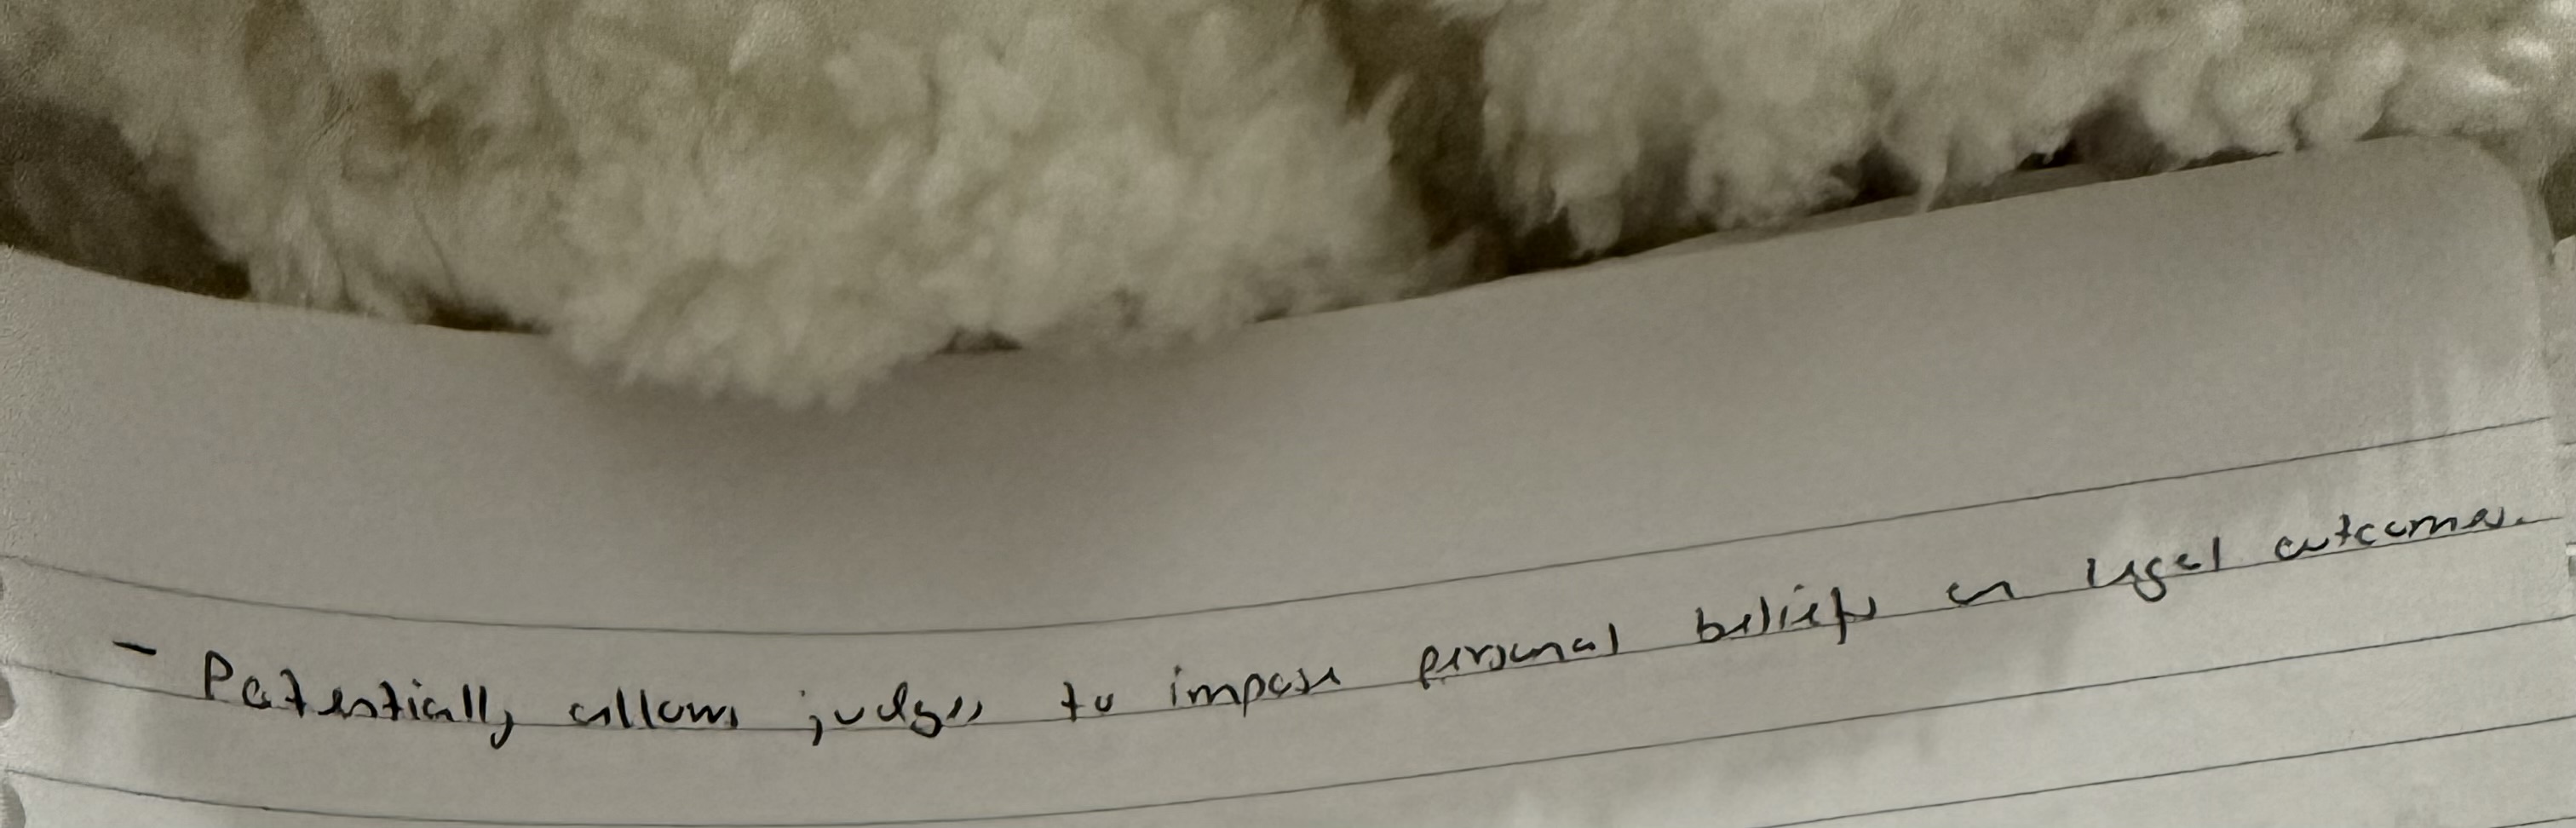 - Potentially allows judges to impose personal beliefs on legal outcomes.